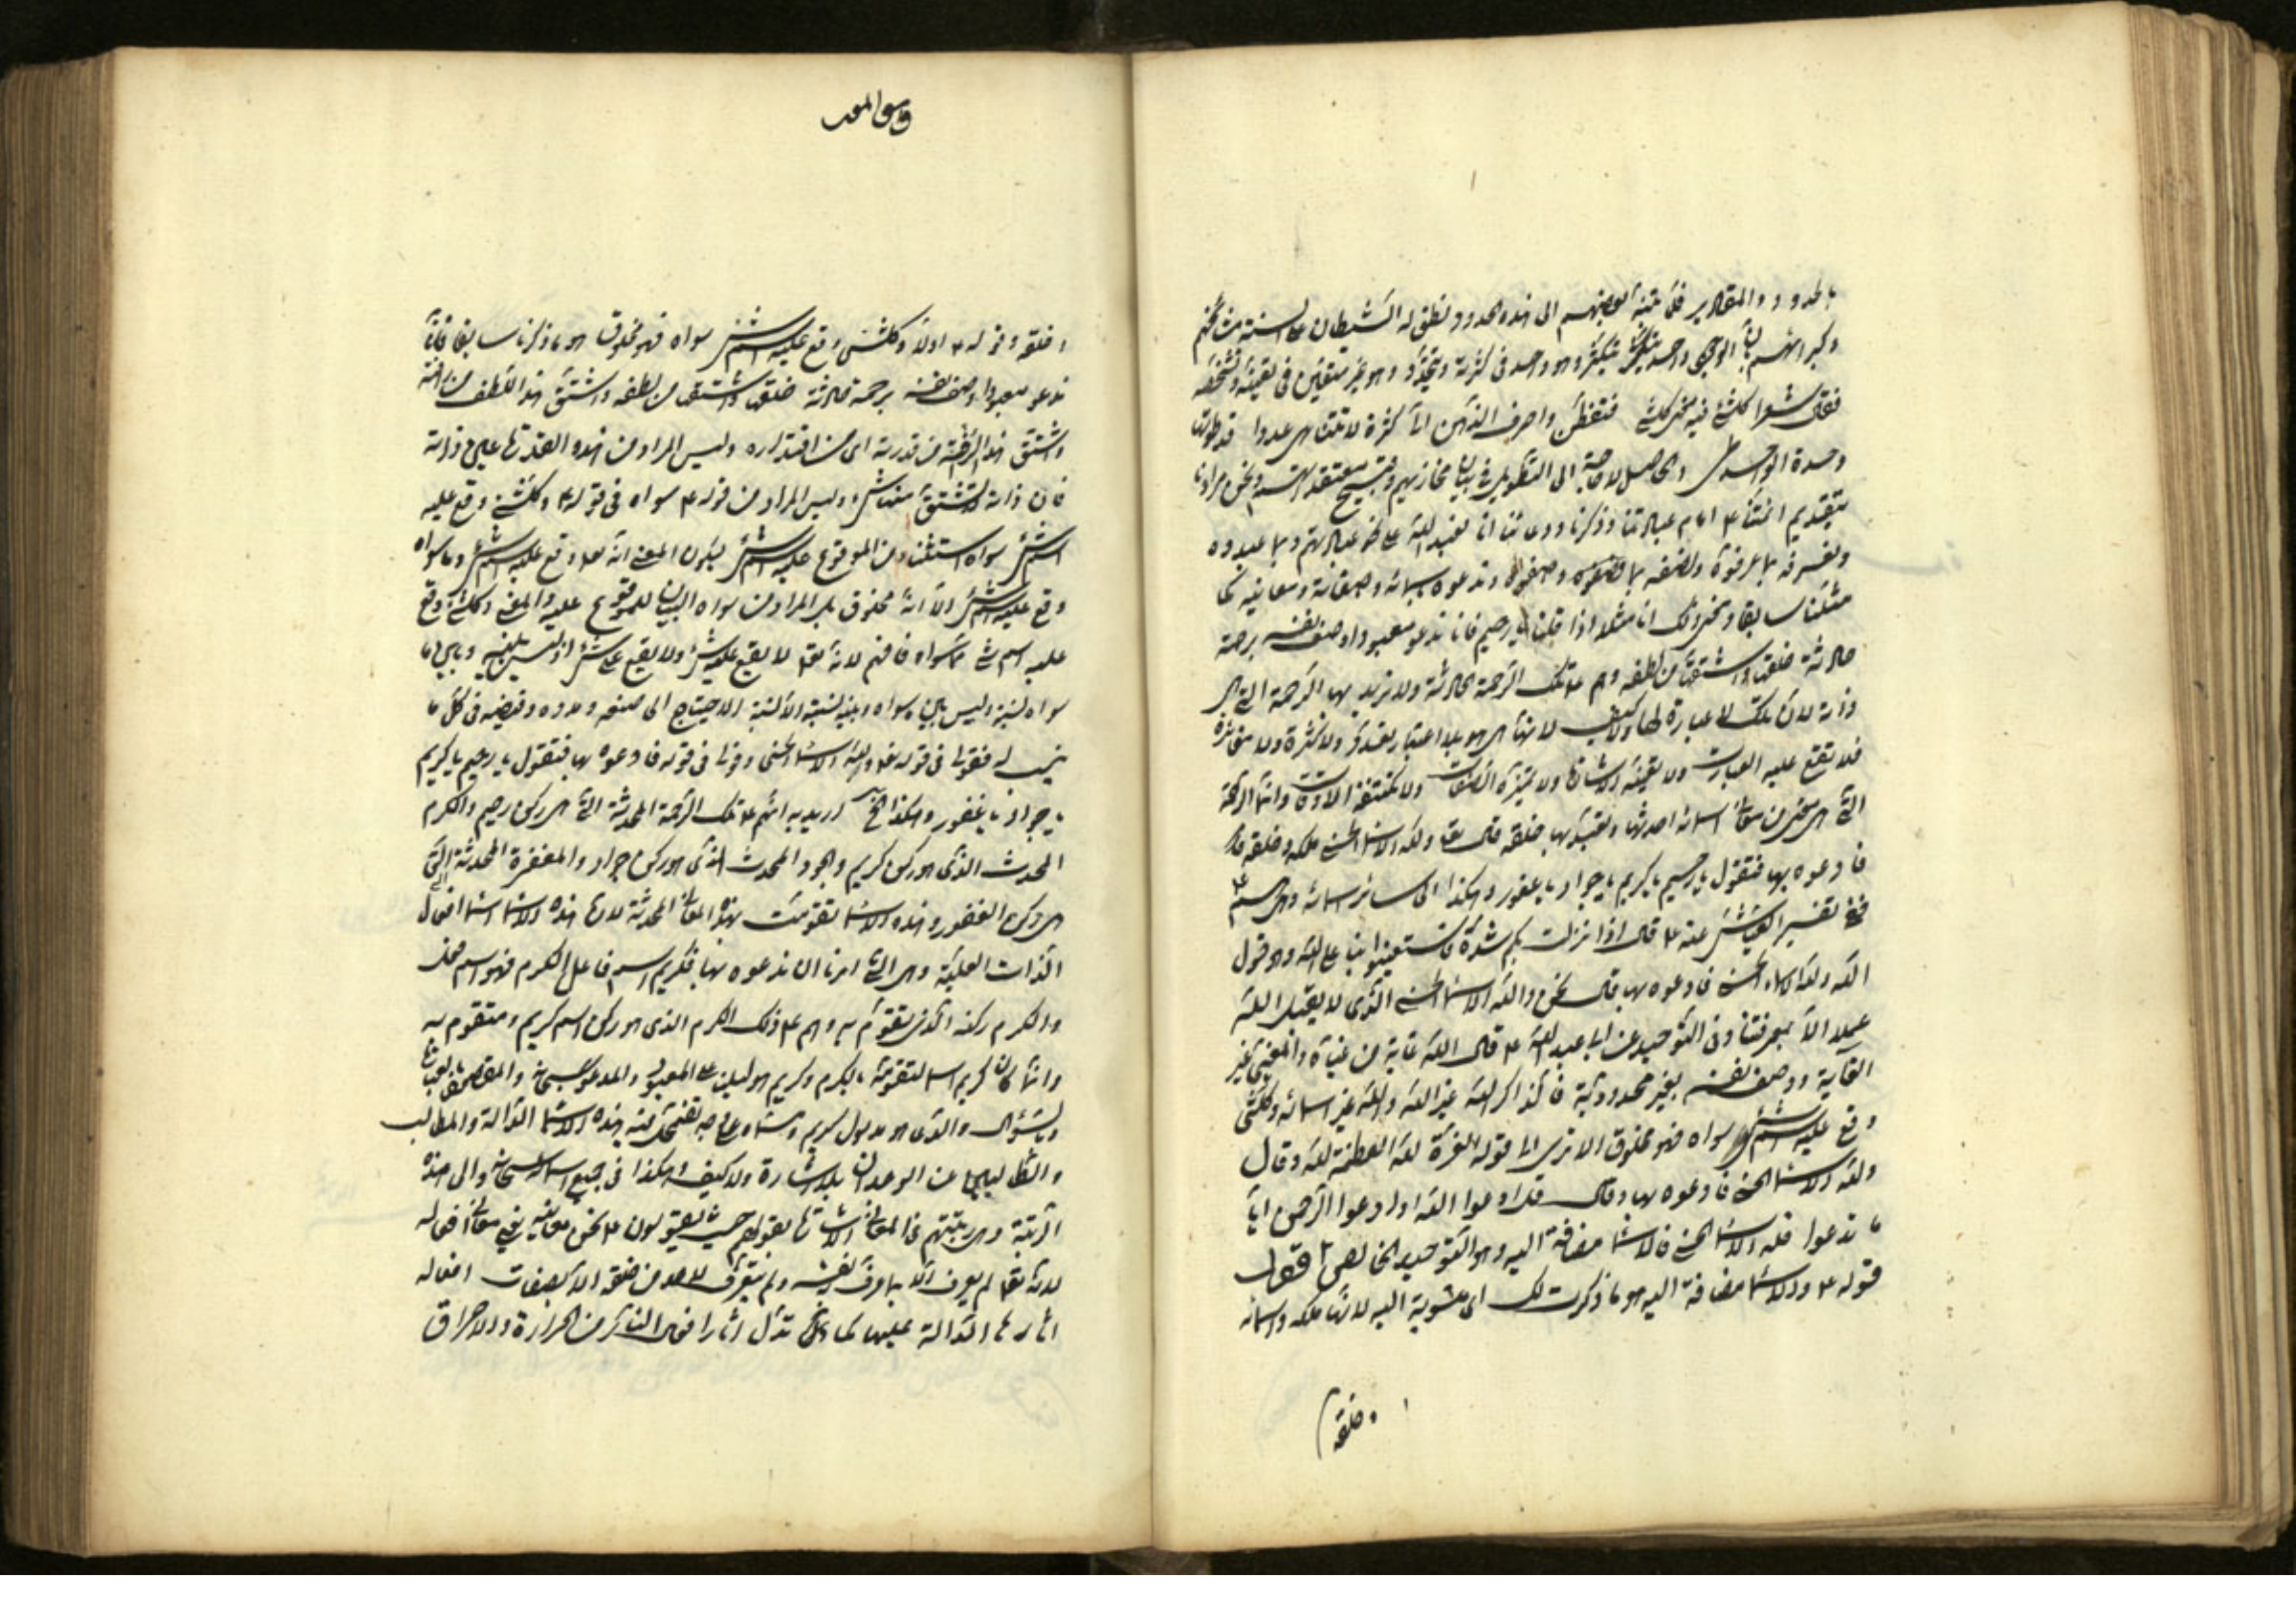 بالحدود والمقادير فلما تنبه بعضهم الى هذه الحدود نطق له الشيطان على السنة مشايخهم
وكبرائهم بان الوجود واحد متكثر وهو واحد في كثرته وتعدده وهو غير متعين في تعينه وتشخصه
فقال شعرا كلشئ فيه معنى كلشئ فتفطن واصرف الذهن الى كثرة لا تتناهى عددا قد طوتها
وحدة الواحد طى والحاصل لا حاجة الى التطويل في بيان مخازيهم وقبيح معتقداتهم ونحن مرادنا
بتقديم ائمتنا ع امام عباداتنا وذكرنا ودعائنا انا نعبد الله على نحو عبادتهم وبما عبدوه
ونعرفه بما عرفوه ونصفه بما وصفوه وندعوه باسمائه وصفاته ومعانيه كما
مثلنا سابقا ونحو ذلك انا مثلا اذا قلنا يا رحيم فانا ندعو معبودا وصف نفسه برحمة
حادثة خلقها واشتقها من لطفه وهم ع تلك الرحمة الحادثة ولا نريد بها الرحمة التي هي
ذاته لان تلك لا عبارة لها ولا كيف لانها هي هو بلا اعتبار تعدد ولا كثرة ولا مغايرة
فلا تقع عليه العبارات ولا تعينه الاشارة ولا تميزه الصفات ولا تكتنفه الاوقات وانما الرحمة
التي هي معنى من معاني اسمائه احدثها وتعبد بها خلقه قال تعالى ولله الاسماء الحسنى ملكه وخلقه قال
فادعوه بها فتقول يا رحيم يا كريم يا جواد يا غفور وهكذا الى سائر اسمائه وهى هم ع
ففي تفسير العياشي عنه ع قال اذا نزلت بكم شدة فاستعينوا بنا على الله وهو قول
الله ولله الاسماء الحسنى فادعوه بها قال نحن والله الاسماء الحسنى الذي لا يقبل الله
عملا الا بمعرفتنا وفي التوحيد عن ابي عبد الله ع قال الله غاية من غياه والمغيى غير
الغاية ووصف نفسه بغير محدودية فالذاكر الله غير الله والله غير اسمائه وكلشئ
وقع عليه اسم شئ سواه فهو مخلوق الا ترى الى قوله العزة لله العظمة لله وقال
ولله الاسماء الحسنى فادعوه بها وقال قل ادعوا الله او ادعوا الرحمن ايا
ما تدعوا فله الاسماء الحسنى فالاسماء مضافة اليه وهو التوحيد الخالص اقول
قوله ع والاسماء مضافة اليه هو ما ذكرت لك اى منسوبة اليه لانها ملكه واسمائه
وخلقه
وخلقه وقوله ع اولا وكلشئ وقع عليه اسم شئ سواه فهو مخلوق هو ما ذكرنا سابقا فانا
ندعو معبودا وصف نفسه برحمة حادثة خلقها واشتقها من لطفه واشتق هذا اللطف من رأفته
واشتق هذا الرأفة من قدرته اى من اقتداره وليس المراد من هذه القدرة هى ذاته
فان ذاته لا يشتق منها شئ وليس المراد من قوله ع سواه في قوله ع وكلشئ وقع عليه
اسم شئ سواه استثناء من الموقوع عليه اسم شئ ليكون المعنى انه تعالى وقع عليه اسم شئ وما سواه
وقع عليه اسم شئ الا انه مخلوق بل المراد من سواه البيان للموقوع عليه والمعنى وكلشئ وقع
عليه اسم شئ مما سواه فافهم لانه تعالى لا يقع عليه شئ ولا يقع على شئ اذ ليس بينه وبين ما
سواه نسبة وليس بين ما سواه وبينه نسبة الا نسبة الاحتياج الى صنعه ومدده وفيضه في كل ما
ينسب له فقولنا في قوله تعالى ولله الاسماء الحسنى وقولنا في قوله فادعوه بها فتقول يا رحيم يا كريم
يا جواد يا غفور وهكذا الخ اريد به انهم ع تلك الرحمة المحدثة التي هي ركن رحيم والكرم
المحدث الذي هو ركن كريم والجود المحدث الذي هو ركن جواد والمغفرة المحدثة التي
هي ركن الغفور وهذه الاسماء تقومت بهذه المعاني المحدثة لان هذه الاسماء اسماء افعال
الذات العلية وهى التي امرنا ان ندعوه بها فكريم اسم فاعل الكرم فهو اسم فعل
والكرم ركنه الذي تقوم به وهم ع ذلك الكرم الذي هو ركن اسم كريم ومتقوم به
وانما كان كريم اسما لتقومه بالكرم وكريم هو دليل على المعبود والمدعو سبحانه والمقصود بالعبادة
وبالسؤال والذي هو مدلول كريم ومسماه على جهة تضمحل فيه هذه الاسماء الدالة والمطالب
والطالبين عن الوجدان بلا اشارة ولا كيف وهكذا في جميع اسمائه سبحانه والى هذه
الرتبة وهى رتبتهم في المعاني الاشارة بقولهم حيث يقولون ع نحن معانيه يعني معاني افعاله
لانه تعالى لم يعرف الا بما عرف نفسه ولم يتعرف لاحد من خلقه الا بصفات افعاله
اثارها الدالة عليها كما تدل اثار افعال النار من الحرارة والاحراق